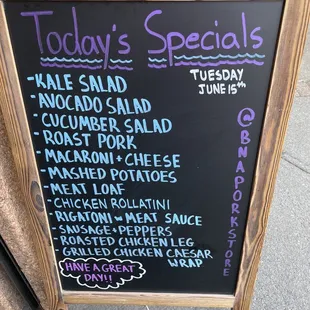 Today's Specials
TUESDAY
JUNE 15TH
-KALE SALAD
-AVOCADO SALAD
-CUCUMBER SALAD
-ROAST PORK
-MACARONI + CHEESE
-MASHED POTATOES
-MEAT LOAF
-CHICKEN ROLLATINI
-RIGATONI W MEAT SAUCE
-SAUSAGE + PEPPERS
-ROASTED CHICKEN LEG
-GRILLED CHICKEN CAESAR
WRAP
HAVE A GREAT
DAY!!
@BNAPORKSTORE